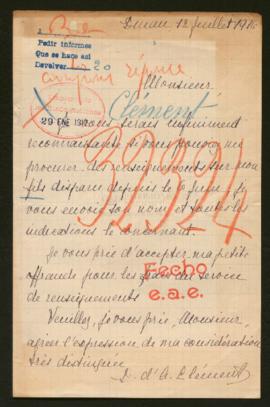 Dinan 12 Juillet 1916
Pedir informes
Que se hace así
Devolver
20
réponse
Monsieur
Clément
29 ENE 1917
Je vous serais infiniment
reconnaissante si vous pouviez me
procurer des renseignements sur mon
fils disparu depuis le 6 Juin. Je
vous envoie son nom et toutes les
indications le concernant.
Je vous prie d'accepter ma petite
offrande pour les frais du service
de renseignements
Fecho
e.a.e.
Veuillez, je vous prie, Monsieur,
agréer l'expression de ma considération
très distinguée
D. d'A. Clément